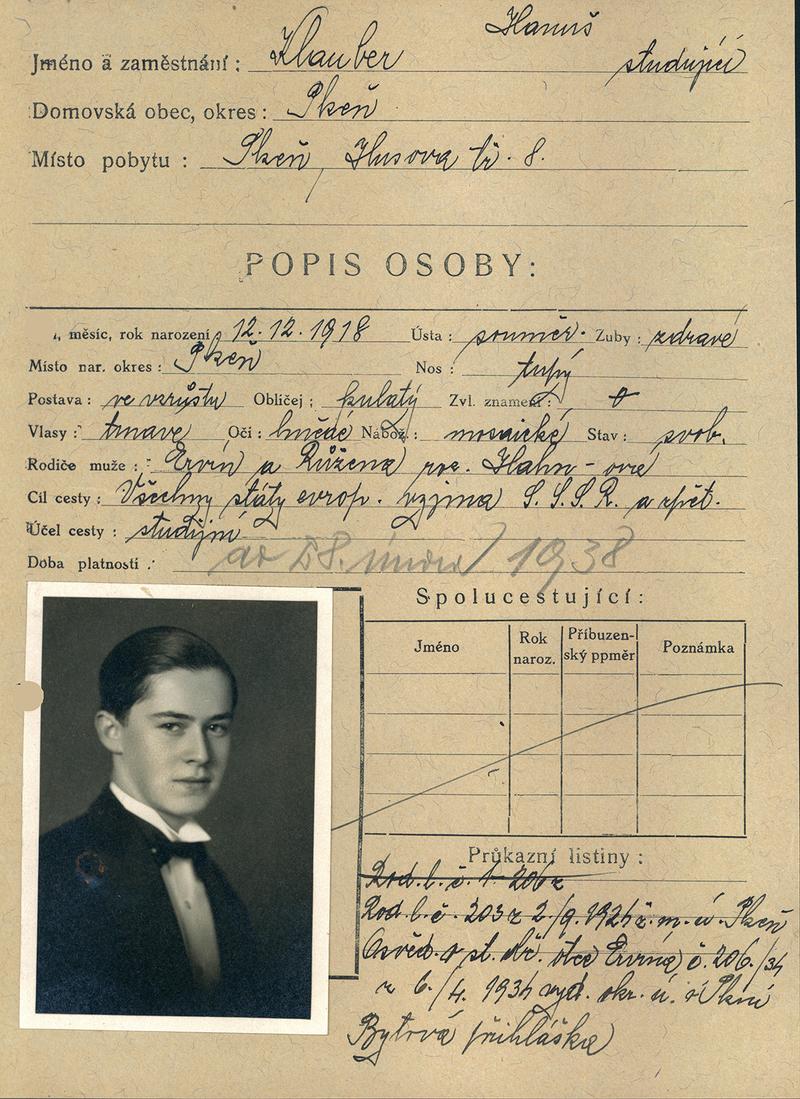 Hanuš
Jméno a zaměstnání: Klauber studující
Domovská obec, okres: Plzeň
Místo pobytu: Plzeň, Husova tř. 8.
POPIS OSOBY:
, měsíc, rok narození 12.12.1918 Ústa: souměr. Zuby: zdravé
Místo nar. okres: Plzeň Nos: tupý
Postava: ve vzrůstu Obličej: kulatý Zvl. znamení:
Vlasy: tmavé Oči: hnědé Nábož.: mosaické Stav: svob.
Rodiče muže: Ervín a Růžena roz. Hahn-ové
Cíl cesty: Všechny státy evrop. vyjma S.S.S.R. a zpět.
Účel cesty: studijní
Doba platnosti: do 28. února 1938
Spolucestující:
Jméno Rok naroz. Příbuzenský poměr Poznámka
Průkazní listiny:
Rod. l. č. 206 z
Rod. l. č. 203 z 2./9. 192 ž. m. ú. Plzeň
Osvěd. o st. obč. otce Ervína č. 206/34
z 6./4. 1934 vyd. okr. ú. v Plzni
Bytová přihláška